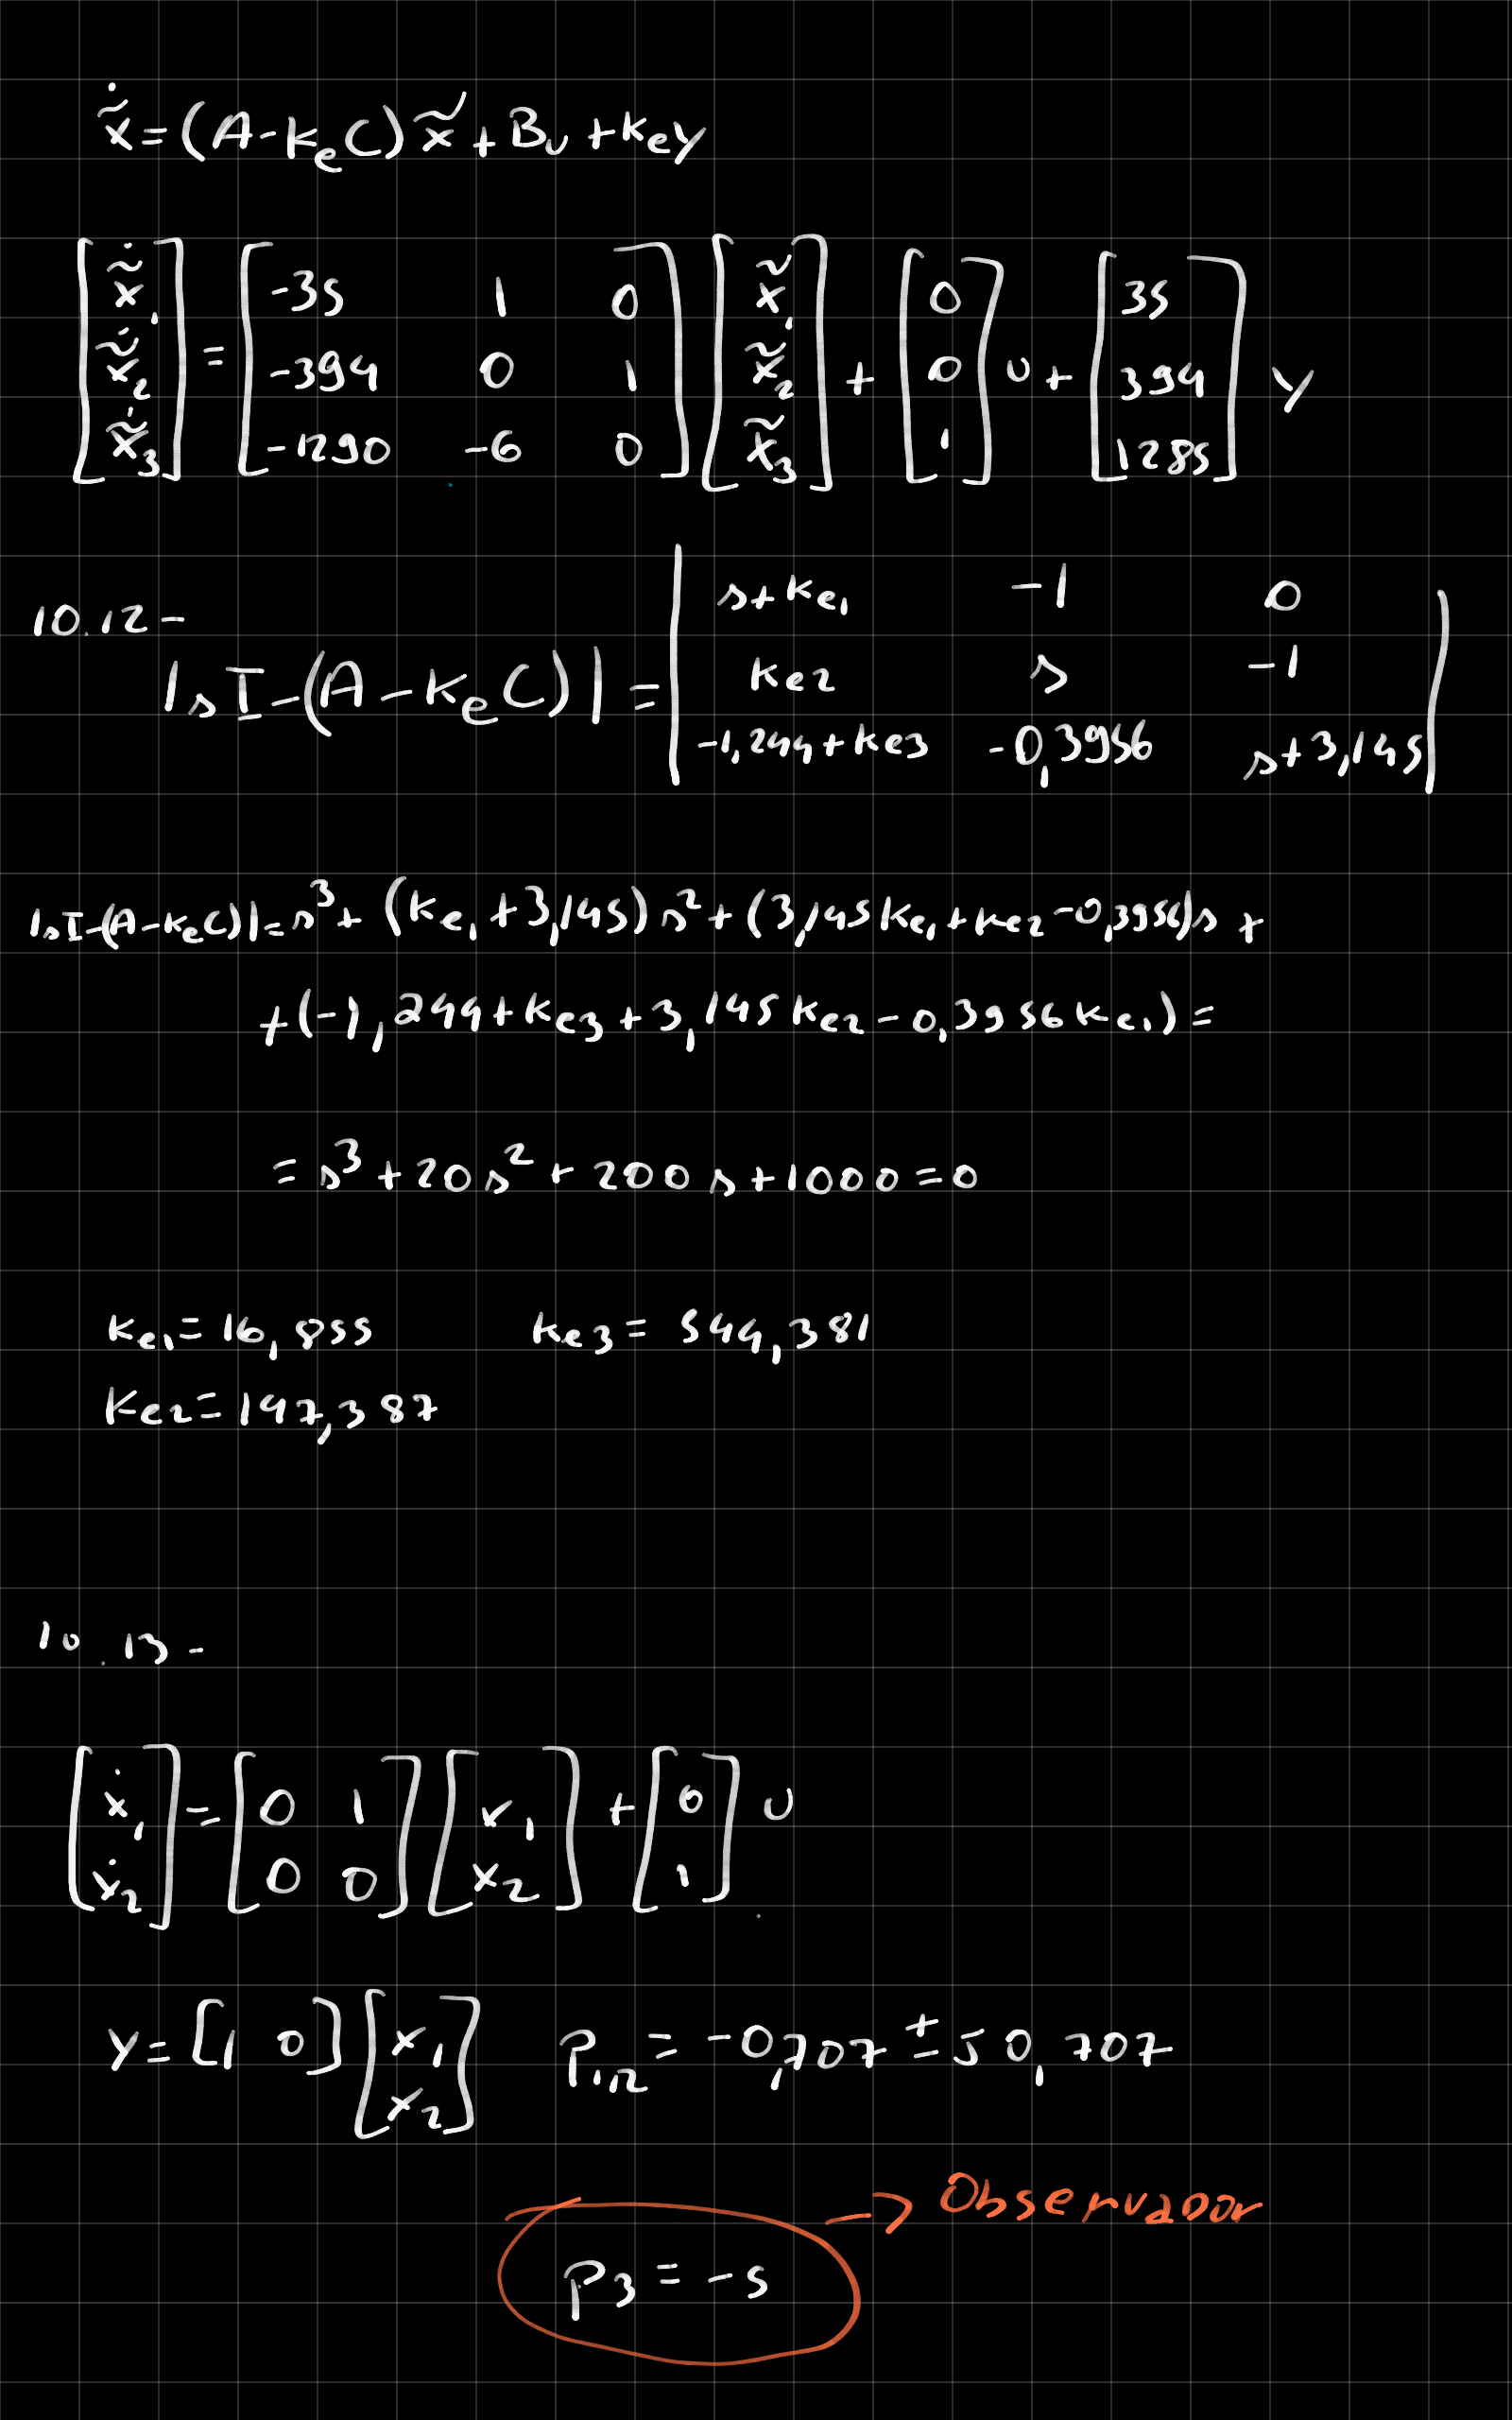 ẋ̃ = (A - KeC) x̃ + Bu + Key
[ẋ̃1; ẋ̃2; ẋ̃3] = [-35 1 0; -394 0 1; -1290 -6 0] [x̃1; x̃2; x̃3] + [0; 0; 1] u + [35; 394; 1285] y
10.12-
|sI - (A - KeC)| = |s+Ke1 -1 0; Ke2 s -1; -1,244+Ke3 -0,3956 s+3,145|
|sI-(A-KeC)| = s³ + (Ke1 + 3,145) s² + (3,145Ke1 + Ke2 - 0,3956)s +
+ (-1,244 + Ke3 + 3,145 Ke2 - 0,3956 Ke1) =
= s³ + 20 s² + 200 s + 1000 = 0
Ke1 = 16,855 Ke3 = 544,381
Ke2 = 147,387
10.13-
[ẋ1; ẋ2] = [0 1; 0 0] [x1; x2] + [0; 1] u
y = [1 0] [x1; x2] P1,2 = -0,707 ± j0,707
→ Observador
P3 = -5